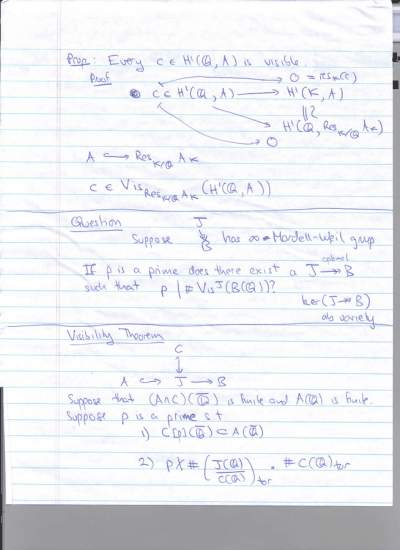 Prop: Every c ∈ H¹(Q, A) is visible.
Proof
0 = res_K(c)
c ∈ H¹(Q, A) → H¹(K, A)
H¹(Q, Res_{K/Q} A_K)
0
A ↪ Res_{K/Q} A_K
c ∈ Vis_{Res_{K/Q} A_K}(H¹(Q, A))
Question
J
Suppose B has ∞ Mordell-Weil group
optimal
If p is a prime does there exist a J → B
such that p | # Vis^J(B(Q))?
ker(J → B)
ab variety
Visibility Theorem
C
↓
A ↪ J → B
Suppose that (A∩C)(Q̄) is finite and A(Q) is finite.
Suppose p is a prime s.t
1) C[p](Q̄) ⊂ A(Q̄)
2) p ∤ # (J(Q)/C(Q))_tor · # C(Q)_tor